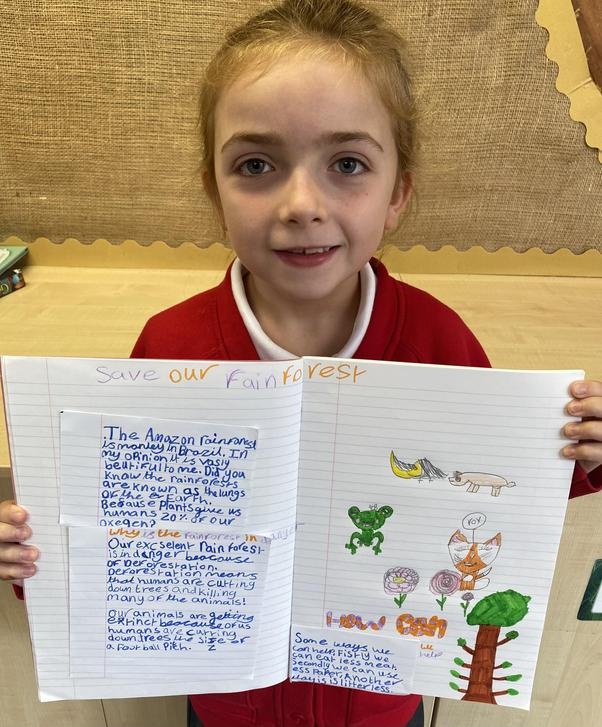 Save our rainforest
The Amazon rainforest
is monley in Brazil. In
my opinion it is vasly
beutiful to me. Did you
know the rainforests
are known as the lungs
of the Earth.
Because plants give us
humans 20% of our
oxegen?
Why is the rainforest in danger
Our excselent Rainforest
is in danger beacause
of Deforestation.
Deforestation means
that humans are cutting
down trees and killing
many of the animals!
Our animals are getting
extinct beacause of us
humans are curring
down trees the size of
a foot ball Pitch.
Fox
How can
we
help
Some ways we
can help, Fistly we
can eat less meat,
Secondly we can use
less Paper, Another
way is is litter less.